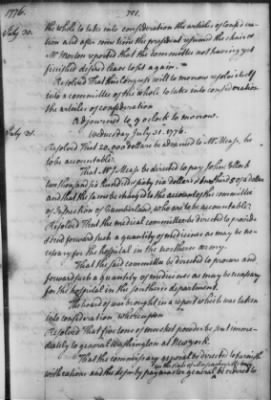 1776.
July 30. the whole to take into consideration the articles of confede
ration and after some time the president resumed the chair &
Mr Morton reported that the committee not having yet
finished desired leave to sit again.
Resolved That this Congress will to morrow resolve itself
into a committee of the whole to take into consideration
the articles of confederation
adjourned to 9 o clock to morrow.
July 31. Wednesday July 31. 1776.
Resolved That 20,000 dollars be advanced to Mr Mease, he
to be accountable.
That Mr Mease be directed to pay John
two thousand six hundred & sixty six dollars & two thirds of a dollar
and that the same be charged to the account of the committee
of inspection of Cumberland, who are to be accountable.
Resolved That the medical committee be directed to provide
and forward such a quantity of medicines as may be ne-
cessary for the hospital in the northern army.
That the said committee be directed to procure and
forward such a quantity of medicines as may be necessary
for the hospital in the southern department.
The board of war brought in a report which was taken
into consideration whereupon
Resolved That five tons of musket powder be sent imme-
diately to general Washington at New york.
That the commissary general be directed to furnish
with rations and the deputy paymaster general be ordered to